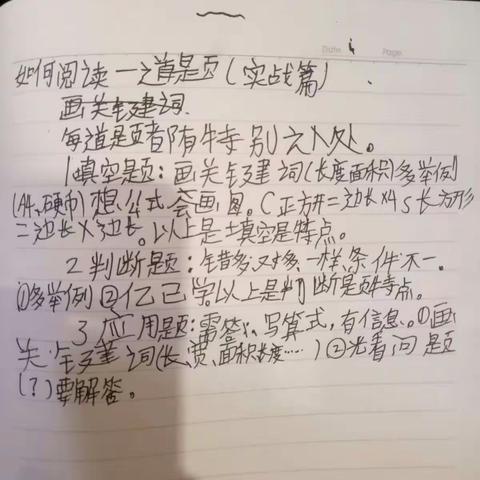 Date
Page
如何阅读一道题(实战篇)
画关键词.
每道题都有特别之处。
1填空题:画关键词(长度面积)多举例
(人、硬币)想公式,会画图。C正方形=边长×4 S长方形
=边长×边长。以上是填空题特点。
2判断题:错多对多、一样、条件不一。
①多举例②忆已学。以上是判断题特点。
3应用题:需答、写算式,有信息。①画
关键词(长、宽、面积、长度……)②先看问题
(?)要解答。